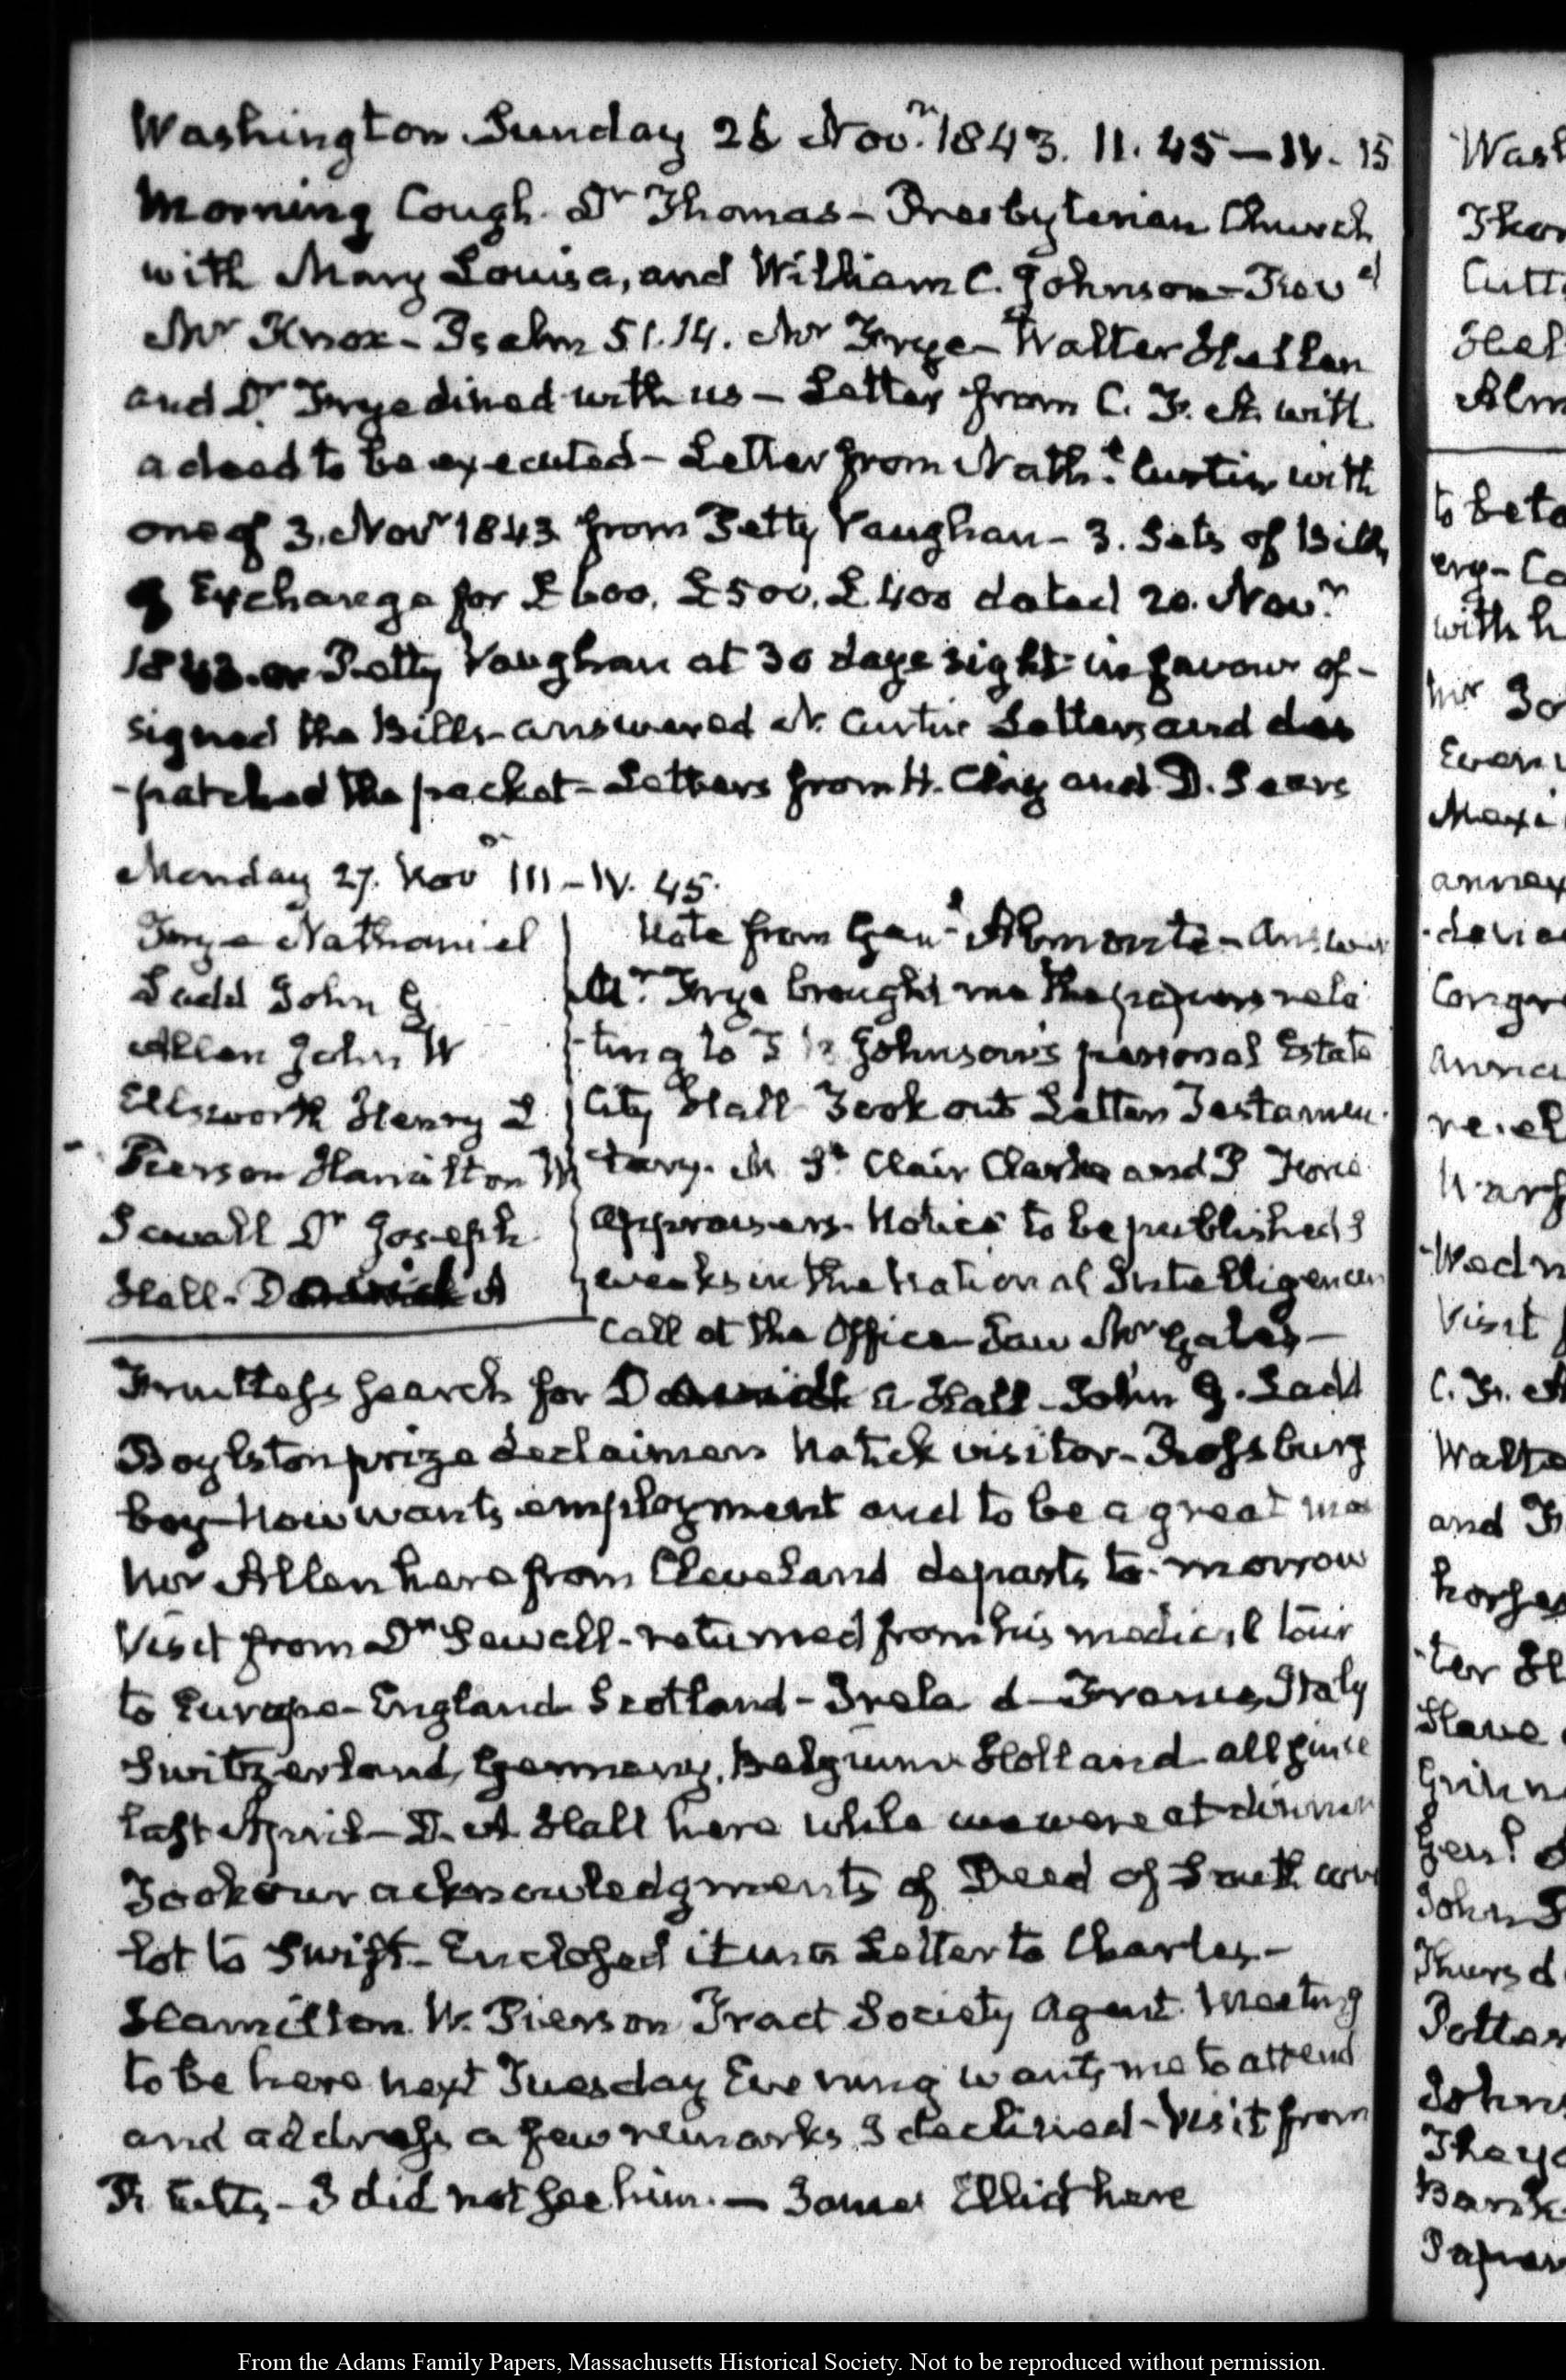 Washington Sunday 26 Novr. 1843. II. 45 — IV. 15
Morning Cough. Dr Thomas - Presbyterian Church
with Mary Louisa, and William C. Johnson - Rev
Mr Knox - Psalm 51.14. Mr Frye - Walter Hellen
and Dr. Frye dined with us - Letter from C. F. A. with
a deed to be executed - Letter from Nathl. Curtis with
one of 3. Novr 1843 from Petty Vaughan - 3. Sets of Bills
of Exchange for £600. £500. £400 dated 20. Novr.
1843. on Petty Vaughan at 30 days sight in favour of -
signed the Bills - answered N. Curtis Letter and des
-patched the packet - Letters from H. Clay and D. Sears
Monday 27. Nov III - IV. 45.
Frye Nathaniel
Ladd John G
Allen John W
Ellsworth Henry L
Pierson Hamilton W
Sewall Dr Joseph
Hall - D A
Note from Genl. Almonte - answer
Mr. Frye brought me the papers rela
-ting to T B Johnson's personal Estate
City Hall Took out Letters Testamen-
tary. M St. Clair Clarke and P Force
appraisers. Notice to be published 3
weeks in the National Intelligencer
call at the Office - Saw Mr Gales -
Fruitless search for D A Hall - John G. Ladd
Boylston prize declaimer Natick visitor - Phopsburg
boy - Now wants employment and to be a great man
Mr Allen here from Cleveland departs to-morrow
Visit from Dr Sewall - returned from his medical tour
to Europe - England Scotland - Ireland - France, Italy
Switzerland, Germany, Belgium Holland - all since
last April - D. A. Hall here while we were at dinner
Took our acknowledgments of Deed of South
lot to Swift - Enclosed it in a Letter to Charles -
Hamilton W. Pierson Tract Society Agent. Meeting
to be here next Tuesday Evening wants me to attend
and address a few remarks I declined - Visit from
- I did not see him. — James Elliot here
Wash
Cutt
Alm
to be
with h
Mr Jo
Even
annex
Congr
Wedn
Visit
C. F. A
Walte
and
horses
Slave
Genl.
John
Thursd
Potter
Johns
Bank
From the Adams Family Papers, Massachusetts Historical Society. Not to be reproduced without permission.